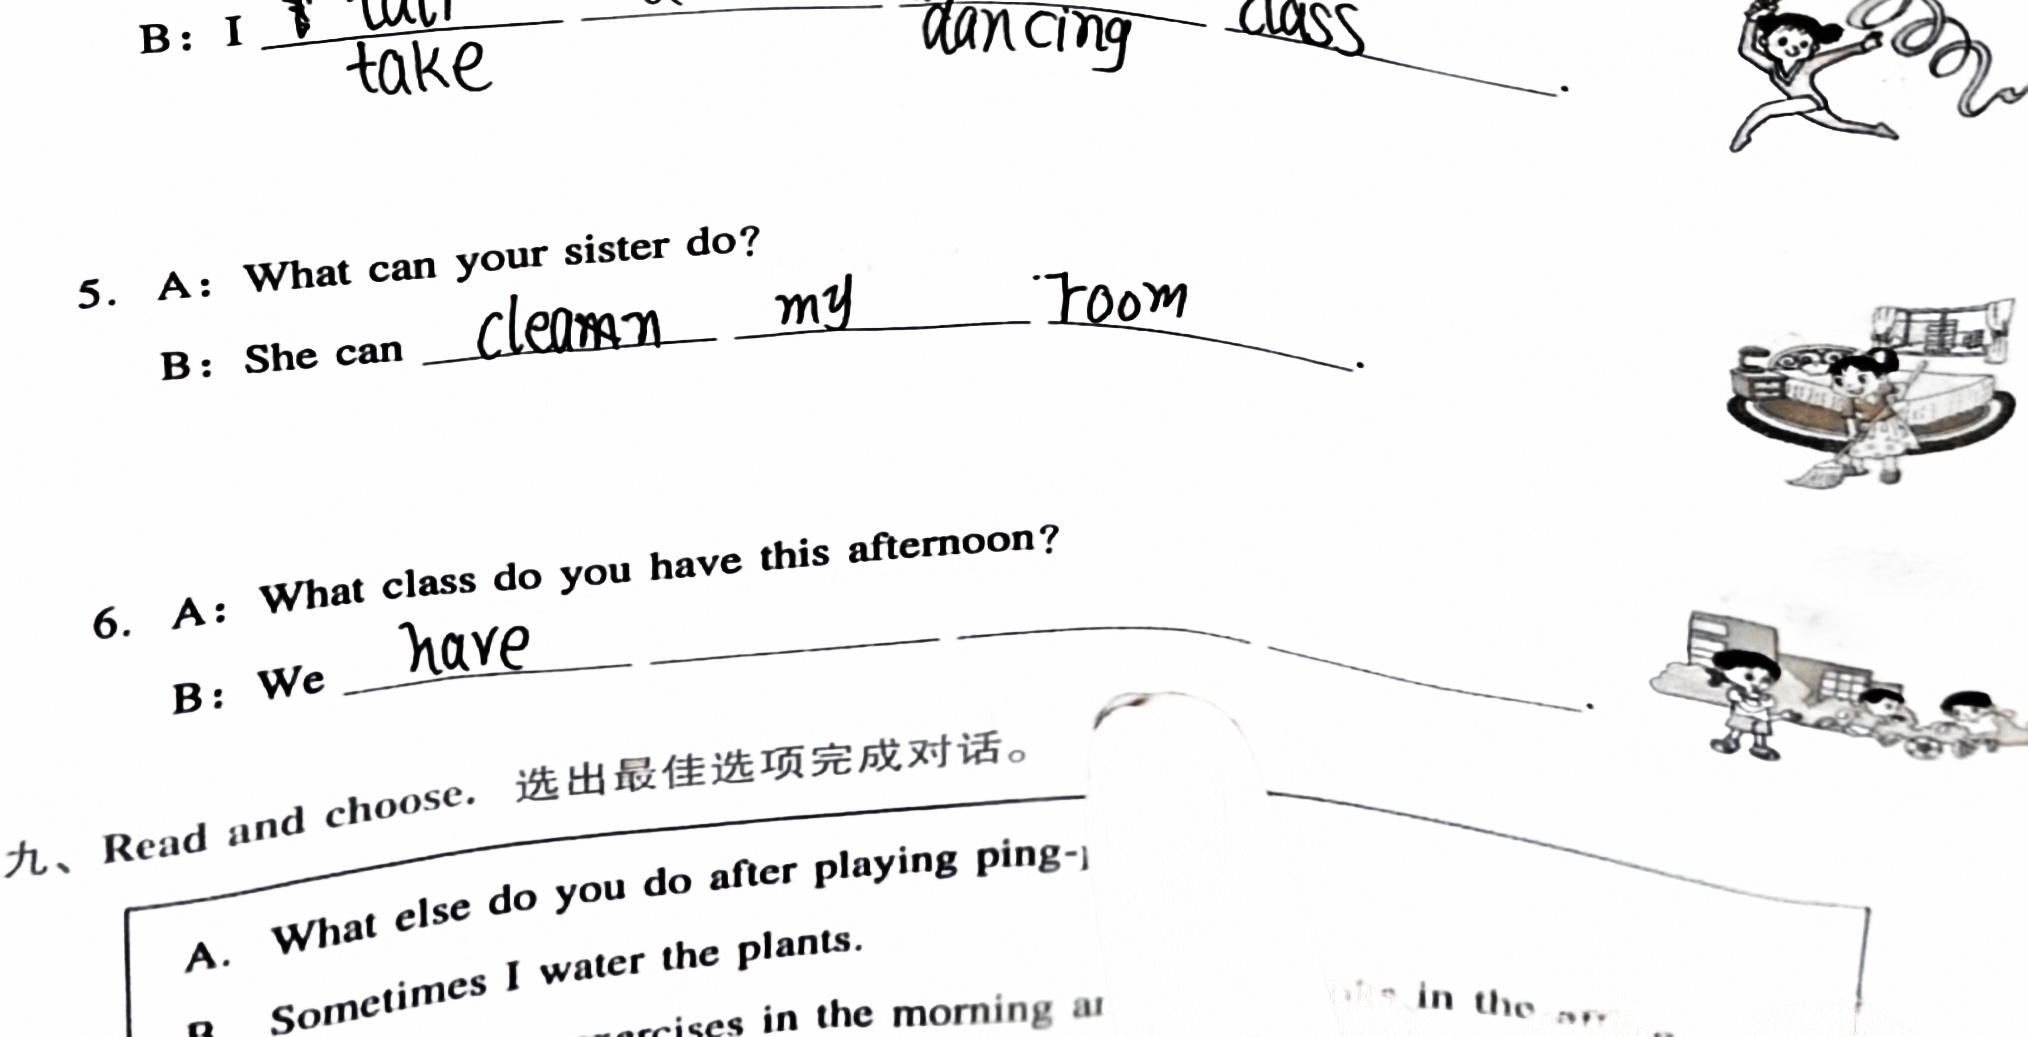 B: I take dancing class.
5. A: What can your sister do?
B: She can cleamn my room.
6. A: What class do you have this afternoon?
B: We have .
九、Read and choose. 选出最佳选项完成对话。
A. What else do you do after playing ping-
Sometimes I water the plants.
in the morning in the